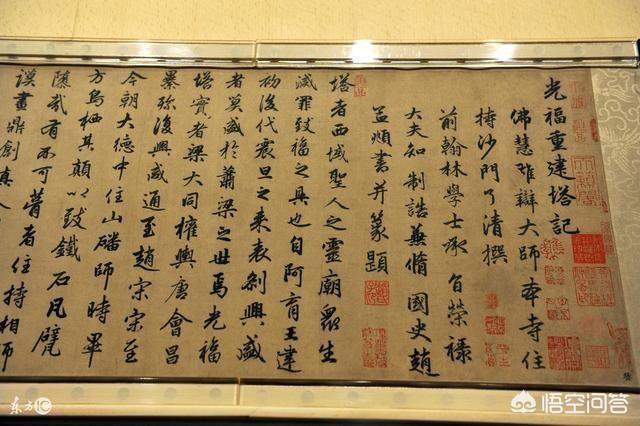 光福重建塔記
佛慧雄辯大師本寺住
持沙門了清撰
前翰林學士承旨榮祿
大夫知制誥兼脩國史趙
孟頫書并篆題
塔者西域聖人之靈廟眾生
滅罪致福之具也自阿育王建
後代震旦之来表刹興盛
者莫盛於蕭梁之世焉光福
塔實者梁大同權輿唐會昌
弥復興咸通至趙宋宗至
今朝大德中住山磻師時畢
方鳥栖其顛以致鐵石凡甓
有不可者住持相師
謨畫鼎創真
东方IC
悟空问答